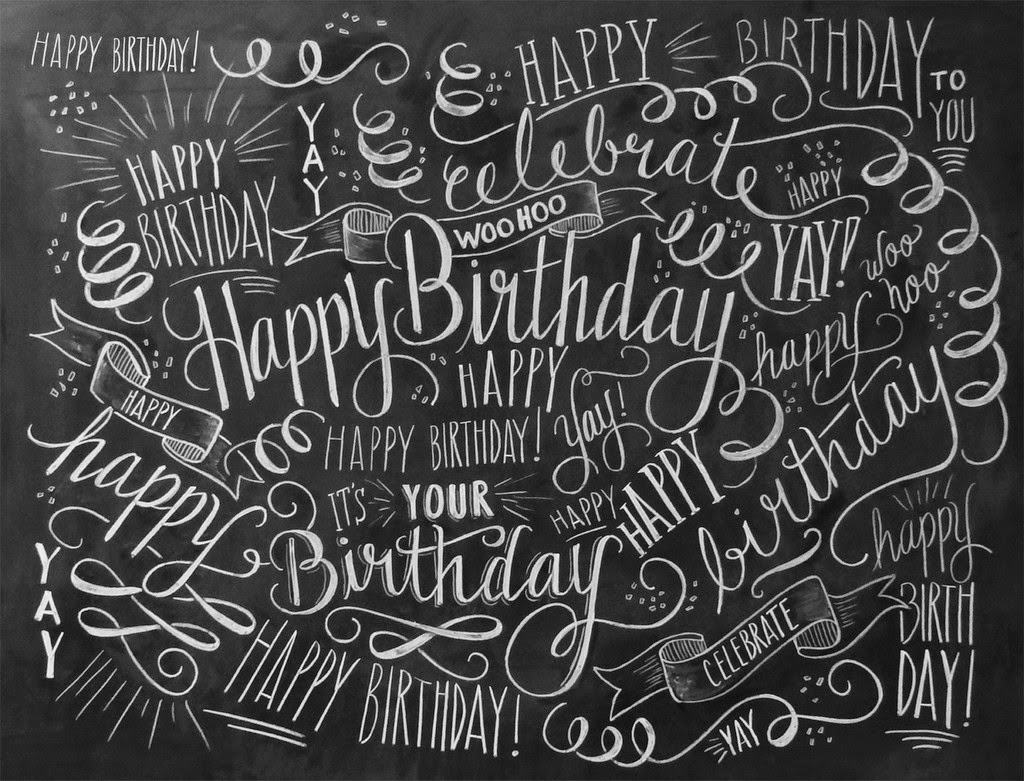 HAPPY BIRTHDAY!
HAPPY BIRTHDAY
TO
YOU
YAY
celebrate
HAPPY
BIRTHDAY
HAPPY
WOO HOO
YAY!
woo
hoo
Happy Birthday
happy
HAPPY
HAPPY
Yay!
HAPPY BIRTHDAY!
happy
birthday
HAPPY
IT'S YOUR
HAPPY
Birthday
happy
BIRTH
DAY!
YAY
CELEBRATE
HAPPY BIRTHDAY!
YAY